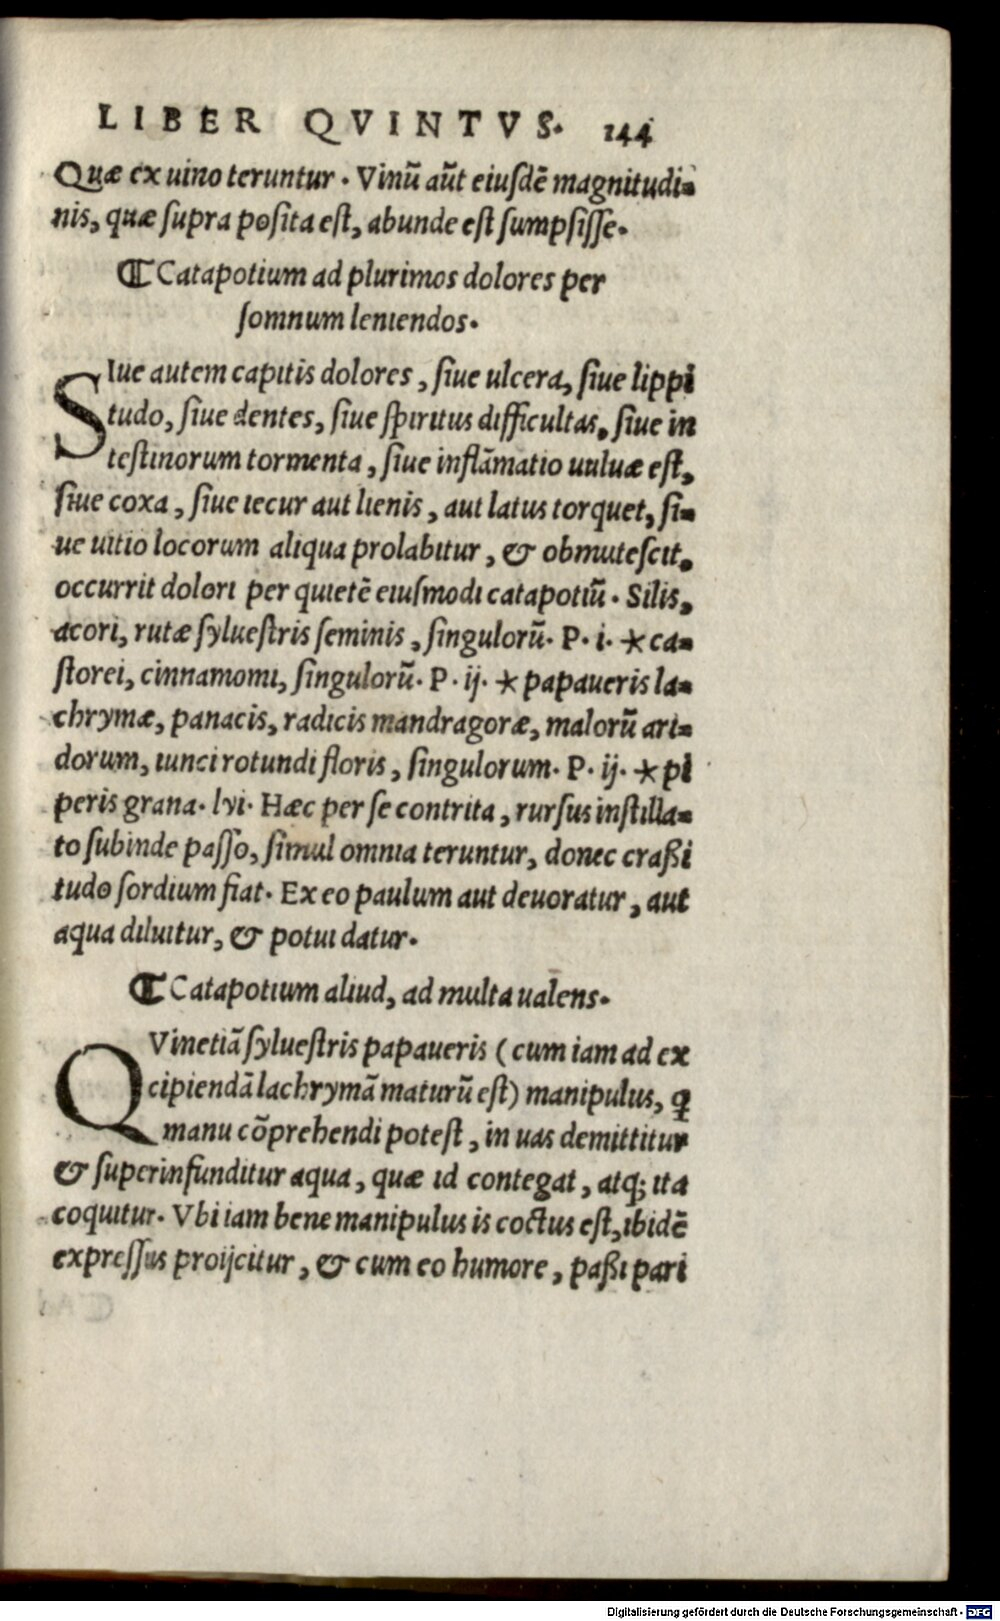 LIBER QVINTVS. 144
Quæ ex uino teruntur. Vinũ aũt eiuſdẽ magnitudi-
nis, quæ ſupra poſita eſt, abunde eſt ſumpſiſſe.
¶ Catapotium ad plurimos dolores per
ſomnum leniendos.
SIue autem capitis dolores, ſiue ulcera, ſiue lippi
tudo, ſiue dentes, ſiue ſpiritus difficultas, ſiue in
teſtinorum tormenta, ſiue inflãmatio uuluæ eſt,
ſiue coxa, ſiue iecur aut lienis, aut latus torquet, ſi-
ue uitio locorum aliqua prolabitur, & obmuteſcit,
occurrit dolori per quietẽ eiuſmodi catapotiũ. Silis,
acori, rutæ ſylueſtris ſeminis, ſingulorũ. P. i. * ca-
ſtorei, cinnamomi, ſingulorũ. P. ij. * papaueris la-
chrymæ, panacis, radicis mandragoræ, malorũ ari-
dorum, iunci rotundi floris, ſingulorum. P. ij. * pi
peris grana. lvi. Hæc per ſe contrita, rurſus inſtilla-
to ſubinde paſſo, ſimul omnia teruntur, donec craßi
tudo ſordium fiat. Ex eo paulum aut deuoratur, aut
aqua diluitur, & potui datur.
¶ Catapotium aliud, ad multa ualens.
QVinetiã ſylueſtris papaueris (cum iam ad ex
cipiendã lachrymã maturũ eſt) manipulus, q̃
manu cõprehendi poteſt, in uas demittitur
& ſuperinfunditur aqua, quæ id contegat, atq; ita
coquitur. Vbi iam bene manipulus is coctus eſt, ibidẽ
expreſſus proijcitur, & cum eo humore, paßi pari
Digitalisierung gefördert durch die Deutsche Forschungsgemeinschaft - DFG